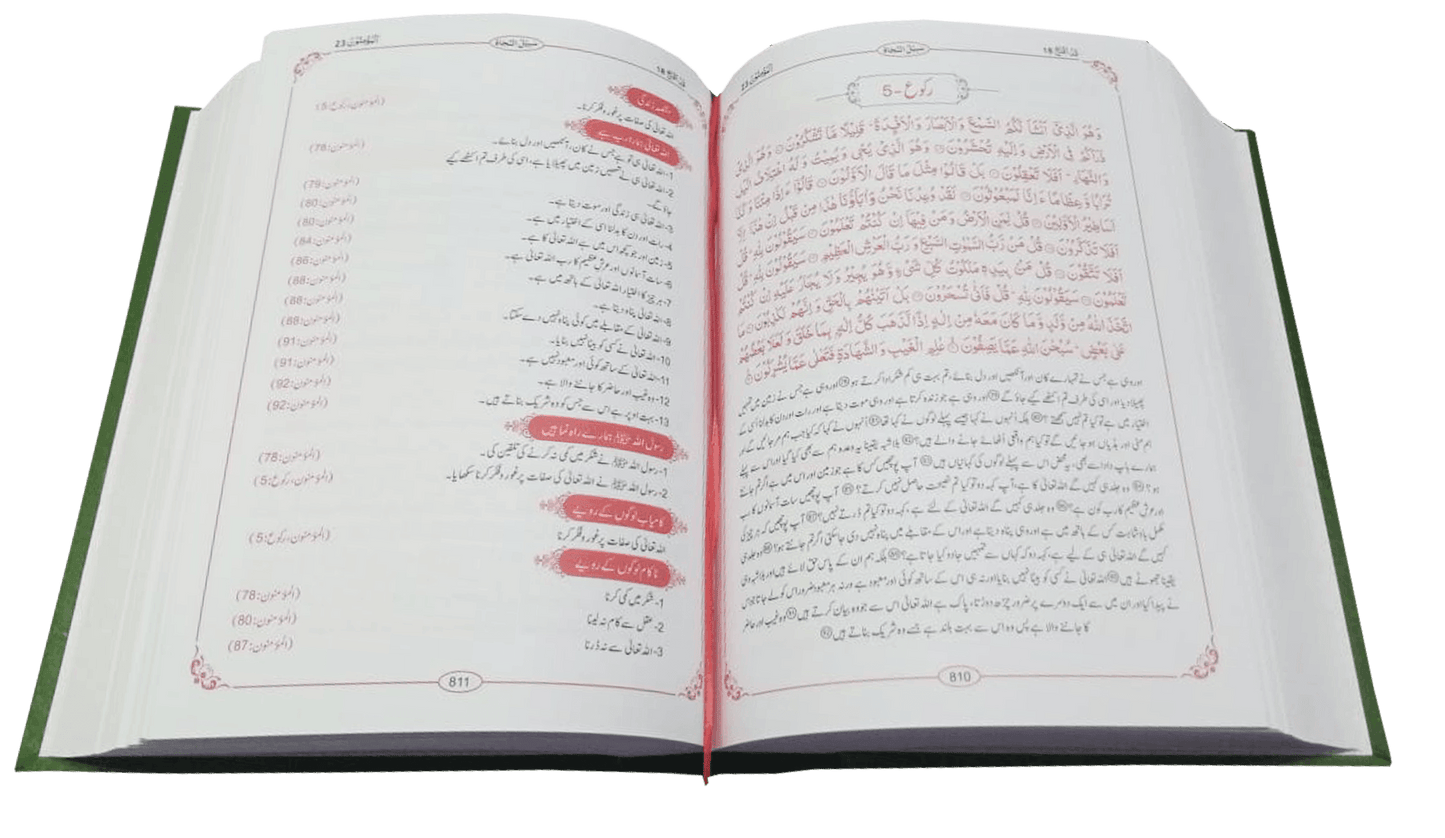 قد افلح 18
سبیل النجاۃ
المؤمنون 23
رکوع -5
وَهُوَ الَّذِیْۤ اَنْشَاَ لَكُمُ السَّمْعَ وَالْاَبْصَارَ وَالْاَفْـِٕدَةَ ؕ قَلِیْلًا مَّا تَشْكُرُوْنَ ۞ وَهُوَ الَّذِیْ
ذَرَاَكُمْ فِی الْاَرْضِ وَاِلَیْهِ تُحْشَرُوْنَ ۞ وَهُوَ الَّذِیْ یُحْیٖ وَیُمِیْتُ وَلَهُ اخْتِلَافُ الَّیْلِ
وَالنَّهَارِ ؕ اَفَلَا تَعْقِلُوْنَ ۞ بَلْ قَالُوْا مِثْلَ مَا قَالَ الْاَوَّلُوْنَ ۞ قَالُوْۤا ءَاِذَا مِتْنَا وَكُنَّا
تُرَابًا وَّعِظَامًا ءَاِنَّا لَمَبْعُوْثُوْنَ ۞ لَقَدْ وُعِدْنَا نَحْنُ وَاٰبَآؤُنَا هٰذَا مِنْ قَبْلُ اِنْ هٰذَاۤ اِلَّاۤ
اَسَاطِیْرُ الْاَوَّلِیْنَ ۞ قُلْ لِّمَنِ الْاَرْضُ وَمَنْ فِیْهَاۤ اِنْ كُنْتُمْ تَعْلَمُوْنَ ۞ سَیَقُوْلُوْنَ لِلّٰهِ ؕ قُلْ
اَفَلَا تَذَكَّرُوْنَ ۞ قُلْ مَنْ رَّبُّ السَّمٰوٰتِ السَّبْعِ وَرَبُّ الْعَرْشِ الْعَظِیْمِ ۞ سَیَقُوْلُوْنَ لِلّٰهِ ؕ قُلْ
اَفَلَا تَتَّقُوْنَ ۞ قُلْ مَنْۢ بِیَدِهٖ مَلَكُوْتُ كُلِّ شَیْءٍ وَّهُوَ یُجِیْرُ وَلَا یُجَارُ عَلَیْهِ اِنْ كُنْتُمْ
تَعْلَمُوْنَ ۞ سَیَقُوْلُوْنَ لِلّٰهِ ؕ قُلْ فَاَنّٰی تُسْحَرُوْنَ ۞ بَلْ اَتَیْنٰهُمْ بِالْحَقِّ وَاِنَّهُمْ لَكٰذِبُوْنَ ۞ مَا
اتَّخَذَ اللّٰهُ مِنْ وَّلَدٍ وَّمَا كَانَ مَعَهٗ مِنْ اِلٰهٍ اِذًا لَّذَهَبَ كُلُّ اِلٰهٍۭ بِمَا خَلَقَ وَلَعَلَا بَعْضُهُمْ
عَلٰی بَعْضٍ ؕ سُبْحٰنَ اللّٰهِ عَمَّا یَصِفُوْنَ ۞ عٰلِمِ الْغَیْبِ وَالشَّهَادَةِ فَتَعٰلٰی عَمَّا یُشْرِكُوْنَ ۞
اور وہی ہے جس نے تمہارے کان اور آنکھیں اور دل بنائے، تم بہت ہی کم شکر ادا کرتے ہو ۞ اور وہی ہے جس نے زمین میں تمہیں
پھیلا دیا اور اسی کی طرف تم اکٹھے کیے جاؤ گے ۞ اور وہی ہے جو زندہ کرتا ہے اور وہی موت دیتا ہے اور رات اور دن کا بدلنا اسی کے
اختیار میں ہے تو کیا تم نہیں سمجھتے؟ ۞ بلکہ اُنہوں نے کہا جیسے پہلے لوگوں نے کہا تھا ۞ اُنہوں نے کہا کہ کیا جب ہم مر جائیں گے اور
ہم مٹی اور ہڈیاں ہو جائیں گے تو کیا ہم واقعی اُٹھائے جانے والے ہیں؟ ۞ بلاشبہ یقیناً یہ وعدہ ہم سے بھی کیا گیا اور اس سے پہلے
ہمارے باپ دادا سے بھی، یہ محض اس سے پہلے لوگوں کی کہانیاں ہیں ۞ آپ پوچھیں کس کا ہے جو زمین اور اس میں ہے اگر تم جانتے
ہو؟ ۞ وہ جلد ہی کہیں گے اللہ تعالیٰ کا ہے، آپ کہہ دو تو کیا تم نصیحت حاصل نہیں کرتے؟ ۞ آپ پوچھیں سات آسمانوں کا رب
اور عرشِ عظیم کا رب کون ہے؟ ۞ وہ جلد ہی کہیں گے اللہ تعالیٰ کے لئے ہے، کہہ دو تو کیا تم ڈرتے نہیں؟ ۞ آپ پوچھیں کہ ہر چیز کی
مکمل بادشاہت کس کے ہاتھ میں ہے اور وہی پناہ دیتا ہے اور اس کے مقابلے میں پناہ نہیں دی جاسکتی اگر تم جانتے ہو؟ ۞ وہ جلد ہی
کہیں گے اللہ تعالیٰ ہی کے لیے ہے، کہہ دو کہ کہاں سے تمہیں جادو کیا جاتا ہے؟ ۞ بلکہ ہم ان کے پاس حق لائے ہیں اور بلاشبہ وہی
یقیناً جھوٹے ہیں ۞ اللہ تعالیٰ نے کسی کو بیٹا نہیں بنایا اور نہ ہی اس کے ساتھ کوئی اور معبود ہے ورنہ ہر معبود ضرور اس کو لے جاتا جو اس
نے پیدا کیا اور ان میں سے ایک دوسرے پر ضرور چڑھ دوڑتا، پاک ہے اللہ تعالیٰ اس سے جو وہ بیان کرتے ہیں ۞ وہ غیب اور حاضر
کا جاننے والا ہے پس وہ اس سے بہت بلند ہے جسے وہ شریک بناتے ہیں ۞
810
قد افلح 18
سبیل النجاۃ
المؤمنون 23
مقصد زندگی
اللہ تعالیٰ کی صفات پر غور و فکر کرنا۔ (المؤمنون، رکوع:5)
اللہ تعالیٰ ہمارا رب ہے
1-اللہ تعالیٰ ہی تو ہے جس نے کان، آنکھیں اور دل بنائے۔ (المؤمنون:78)
2-اللہ تعالیٰ ہی نے تمھیں زمین میں پھیلایا ہے، اسی کی طرف تم اکٹھے کیے
جاؤ گے۔ (المؤمنون:79)
3-اللہ تعالیٰ ہی زندگی اور موت دیتا ہے۔ (المؤمنون:80)
4-رات اور دن کا بدلنا اسی کے اختیار میں ہے۔ (المؤمنون:80)
5-زمین اور جو کچھ اس میں ہے اللہ تعالیٰ کا ہے۔ (المؤمنون:84)
6-سات آسمانوں اور عرشِ عظیم کا رب اللہ تعالیٰ ہے۔ (المؤمنون:86)
7-ہر چیز کا اختیار اللہ تعالیٰ کے ہاتھ میں ہے۔ (المؤمنون:88)
8-اللہ تعالیٰ پناہ دیتا ہے۔ (المؤمنون:88)
9-اللہ تعالیٰ کے مقابلے میں کوئی پناہ نہیں دے سکتا۔ (المؤمنون:88)
10-اللہ تعالیٰ نے کسی کو بیٹا نہیں بنایا۔ (المؤمنون:91)
11-اللہ تعالیٰ کے ساتھ کوئی اور معبود نہیں ہے۔ (المؤمنون:91)
12-وہ غیب اور حاضر کا جاننے والا ہے۔ (المؤمنون:92)
13-بہت اوپر ہے اس سے جس کو وہ شریک بناتے ہیں۔ (المؤمنون:92)
رسول اللہ ﷺ ہمارے راہ نما ہیں
1-رسول اللہ ﷺ نے شکر میں کمی نہ کرنے کی تلقین کی۔ (المؤمنون:78)
2-رسول اللہ ﷺ نے اللہ تعالیٰ کی صفات پر غور و فکر کرنا سکھایا۔ (المؤمنون، رکوع:5)
کامیاب لوگوں کے رویے
اللہ تعالیٰ کی صفات پر غور و فکر کرنا (المؤمنون، رکوع:5)
ناکام لوگوں کے رویے
1-شکر میں کمی کرنا (المؤمنون:78)
2-عقل سے کام نہ لینا (المؤمنون:80)
3-اللہ تعالیٰ سے نہ ڈرنا (المؤمنون:87)
811